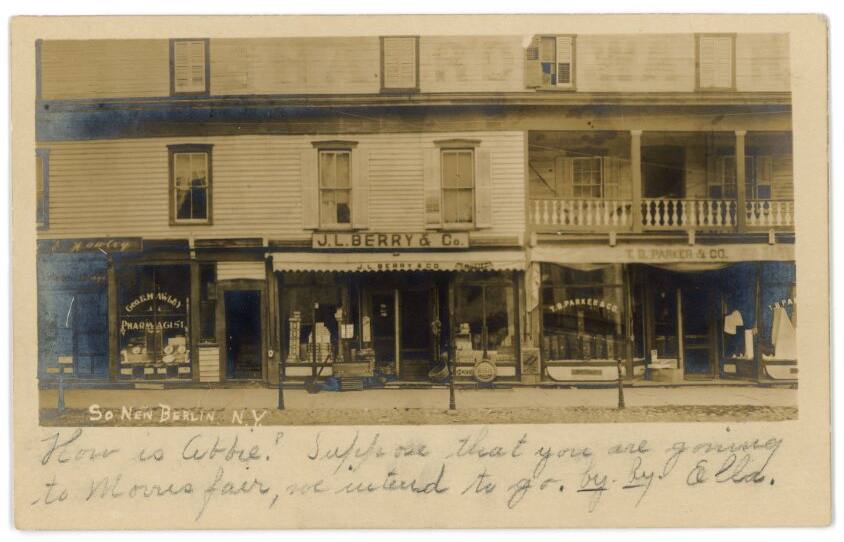 HARDWAR
J. L. BERRY & Co.
J. L. BERRY & CO.
T. D. PARKER & CO.
PHARMACIST
T. D. PARKER & CO.
T. D. PA
So. NEW BERLIN. N.Y.
How is Abbie? Suppose that you are goning
to Morris fair, we intend to go. by. By. Ella.